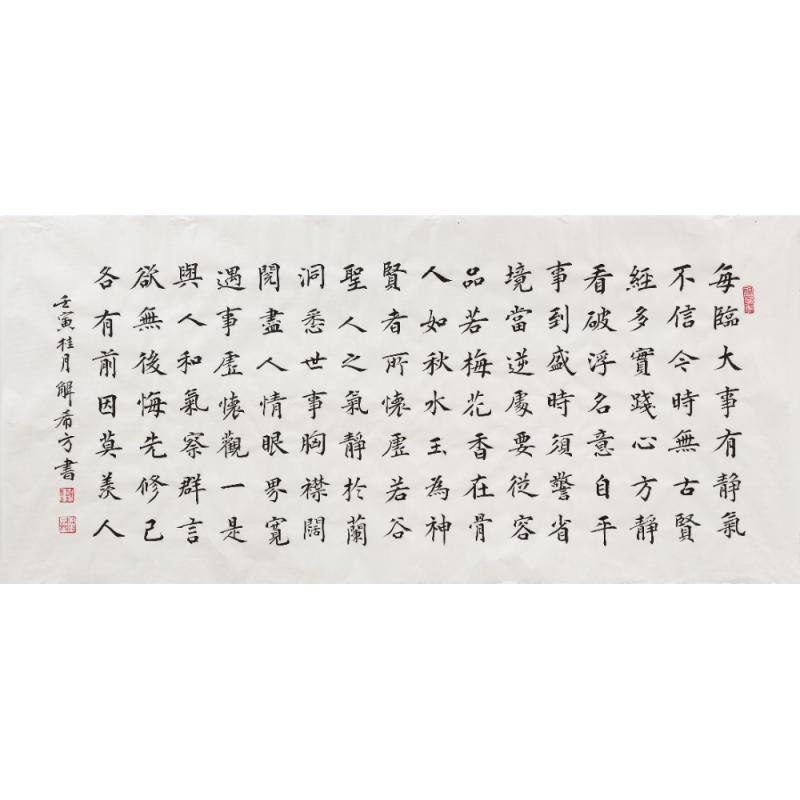 每臨大事有静氣
不信今時無古賢
經多實踐心方静
看破浮名意自平
事到盛時須警省
境當逆處要從容
品若梅花香在骨
人如秋水玉為神
賢者所懷虛若谷
聖人之氣静於蘭
洞悉世事胸襟闊
閱盡人情眼界寬
遇事虛懷觀一是
與人和氣察群言
欲無後悔先修己
各有前因莫羨人
壬寅桂月解希方書